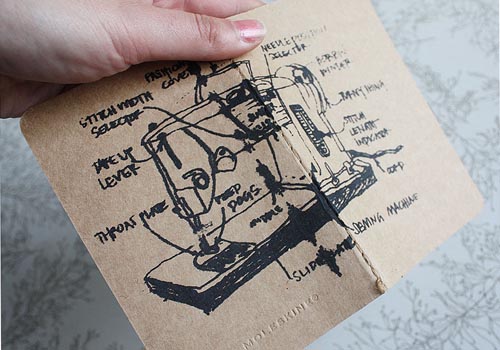 NEEDLE POSITION
SELECTOR
FASHION
COVER
BOBBIN
WINDER
STITCH WIDTH
SELECTOR
STITCH
LENGTH
INDICATOR
TAKE UP
LEVER
THROAT PLATE
FEED
DOGS
NEEDLE
SEWING MACHINE
SLIDE PLATE
MOLESKINE